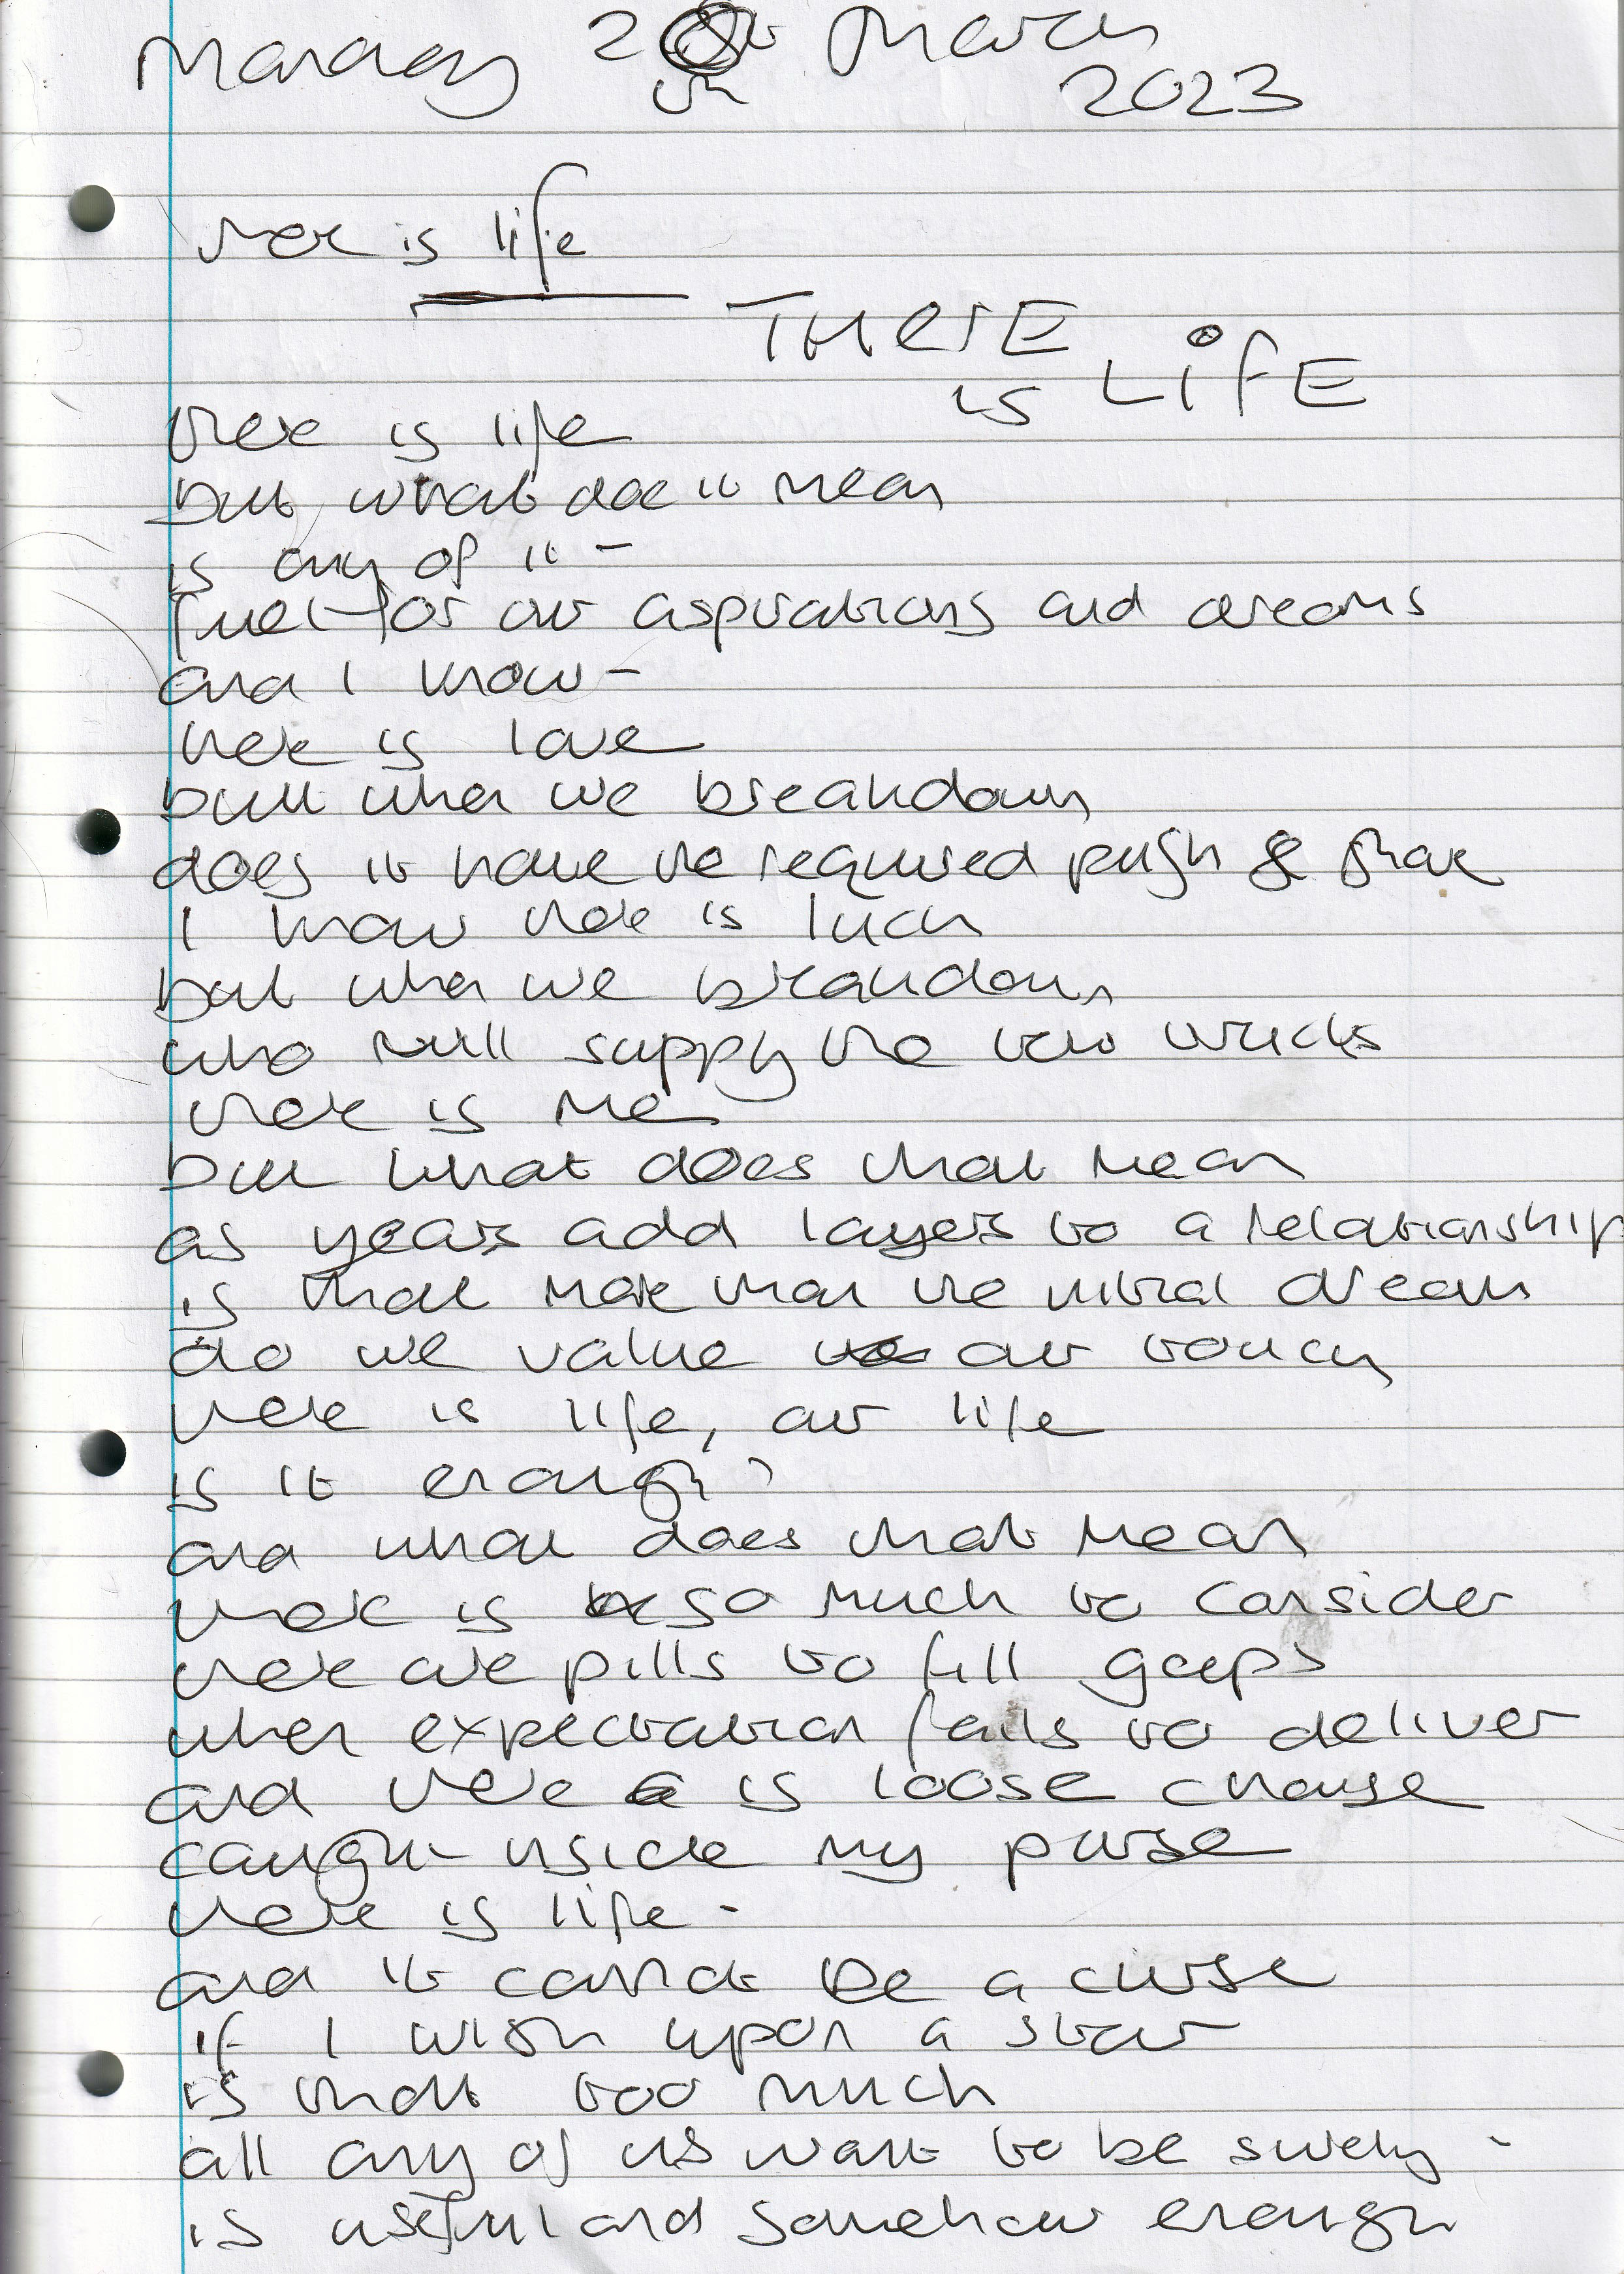 Monday 20th March
2023
there is life
THERE
is LifE
there is life
but what doe it mean
is any of it -
fuel for our aspirations and dreams
and I know -
there is love
but when we breakdown
does it have the required push & shove
I know there is luck
but when we breakdown
who will supply the tow trucks
there is me
but what does that mean
as years add layers to a relationship
is that more than the initial dream
do we value our touch
there is life, our life
is it enough?
and what does that mean
there is so much to consider
there are pills to fill gaps
when expectation fails to deliver
and there is loose change
caught inside my purse
there is life -
and it cannot be a curse
if I wish upon a star
is that too much
all any of us want to be surely -
is useful and somehow enough